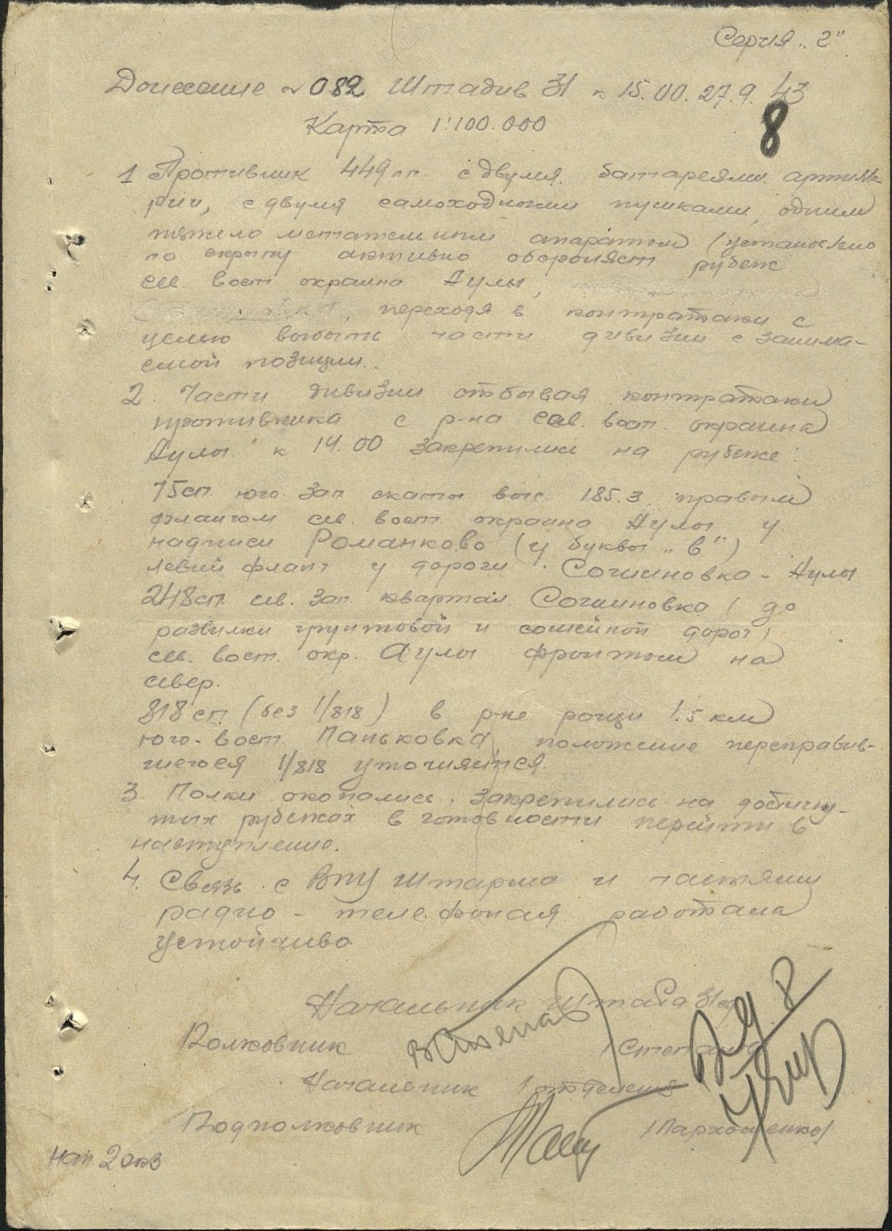 Серия „2"
Донесение № 082 Штадив 31 к 15.00. 27.9.43
8
Карта 1:100.000
1 Противник 449пп с двумя батареями артилле-
рии, с двумя самоходными пушками, одним
тяжело метательным апаратом (установлено
по окрыту активно обороняет рубеж
сев вост окраина Аулы,
переходя в контратаки с
целью выбыть части дивизии с занима-
емой позиции.
2. Части дивизии отбывая контратаки
противника с р-на сев. вост. окраина
Аулы к 14.00 закрепились на рубеже:
75сп. юго. зап скаты выс. 185.3. правым
флангом сев. вост. окраина Аулы у
надписи Романково (у буквы „в")
левый фланг у дороги Согшиновка - Аулы
248сп. сев. зап. квартал Согшиновка / до
развилки грунтовой и сошейной дорог/
сев. вост. окр. Аулы фронтом на
север.
818сп (без 1/818) в р-не рощи 1.5 км
юго-вост. Паньковка, положение переправив-
шегося 1/818 уточняется.
3. Полки окопались, закрепились на добигну-
тых рубежах в готовности перейти в
наступление.
4. Связь с ВПУ Штарма и частями
радио - телефоная работала
устойчиво
Начальник штаба 31
Полковник
Начальник 1 отделения
Подполковник /Пархоменко/
нап 2 экз